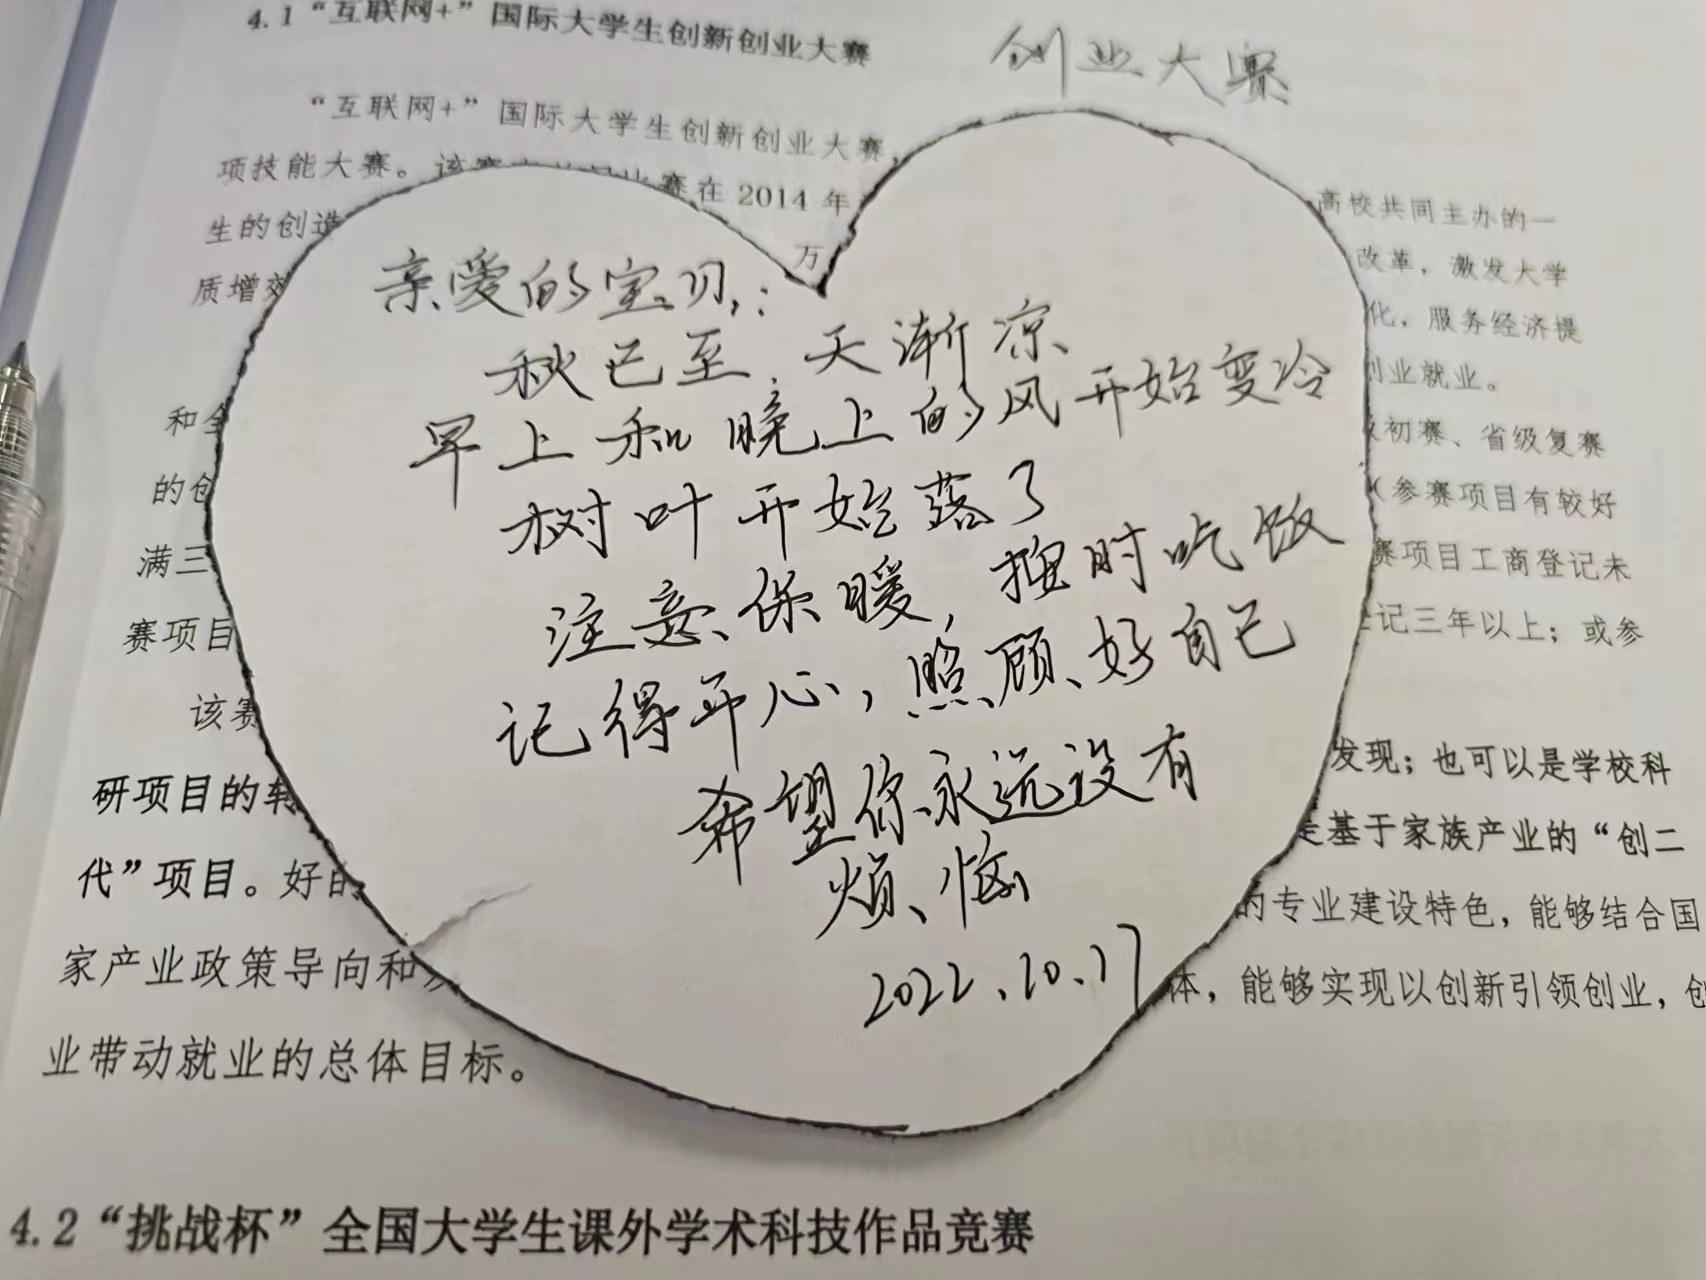 4.1“互联网+”国际大学生创新创业大赛
创业大赛
“互联网+”国际大学生创新创业大赛,
项技能大赛。该赛
赛在2014年
高校共同主办的一
生的创造
万
改革，激发大学
质增效
化，服务经济提
创业就业。
和全
初赛、省级复赛
的创
（参赛项目有较好
满三
赛项目工商登记未
赛项目
登记三年以上；或参
该赛
发现；也可以是学校科
研项目的转
是基于家族产业的“创二
代”项目。好的
的专业建设特色，能够结合国
家产业政策导向和
体，能够实现以创新引领创业，创
业带动就业的总体目标。
亲爱的宝贝：
秋已至，天渐凉
早上和晚上的风开始变冷
树叶开始落了
注意保暖，按时吃饭
记得开心，照顾好自己
希望你永远没有
烦恼
2022.10.17
4.2“挑战杯”全国大学生课外学术科技作品竞赛